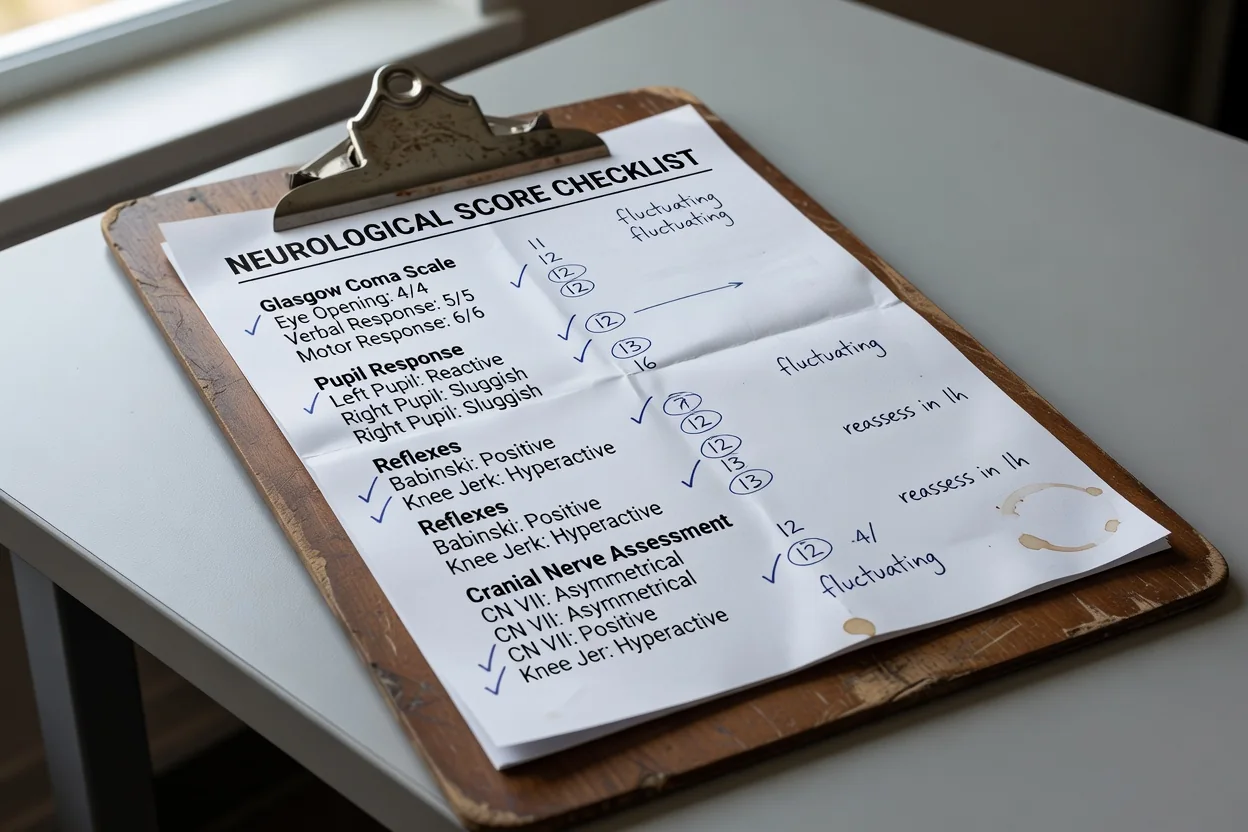 NEUROLOGICAL SCORE CHECKLIST
fluctuating
fluctuating
Glasgow Coma Scale
Eye Opening: 4/4
Verbal Response: 5/5
Motor Response: 6/6
11
12
12
12
Pupil Response
Left Pupil: Reactive
Right Pupil: Sluggish
Right Pupil: Sluggish
12
13
16
fluctuating
Reflexes
Babinski: Positive
Knee Jerk: Hyperactive
12
12
13
13
reassess in 1h
Reflexes
Babinski: Positive
Knee Jerk: Hyperactive
reassess in 1h
Cranial Nerve Assessment
CN VII: Asymmetrical
CN VII: Asymmetrical
CN VII: Positive
Knee Jer: Hyperactive
12
12 .4/
fluctuating